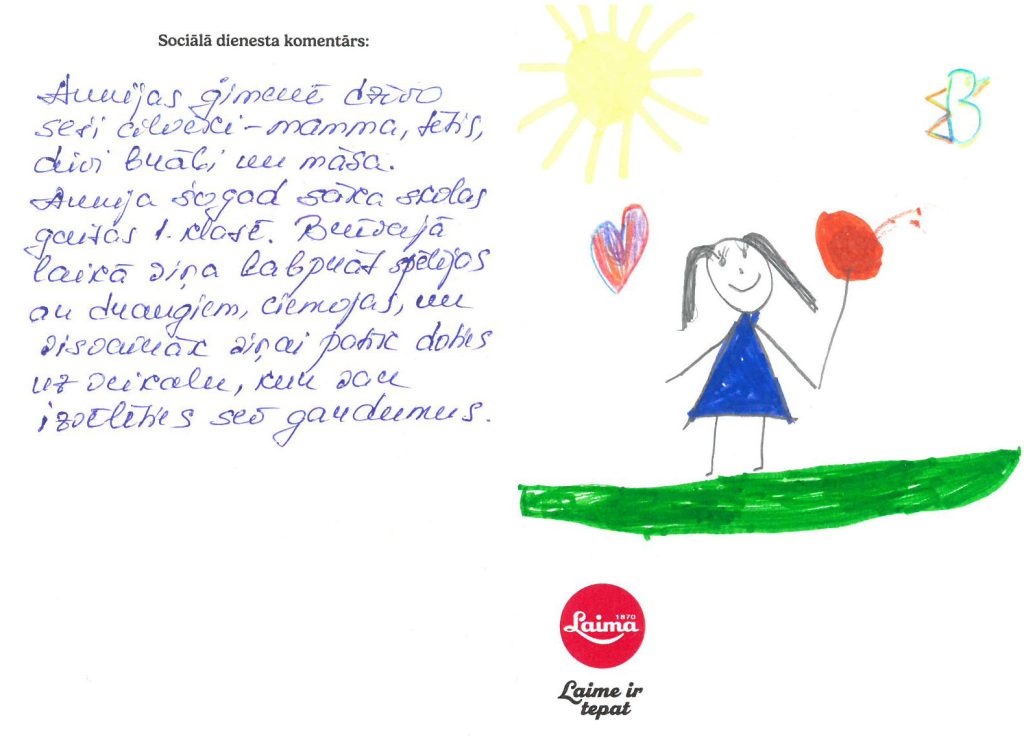 Sociālā dienesta komentārs:
Annijas ģimenē dzīvo
seši cilvēki – mamma, tētis,
divi brāļi un māsa.
Annija šogad sāka skolas
gaitas 1. klasē. Brīvajā
laikā viņa labprāt spēlējas
ar draugiem, ciemojas, un
visvairāk viņai patīk doties
uz veikalu, kur var
izvēlēties sev gardumus.
B
Laima
1870
Laime ir
tepat